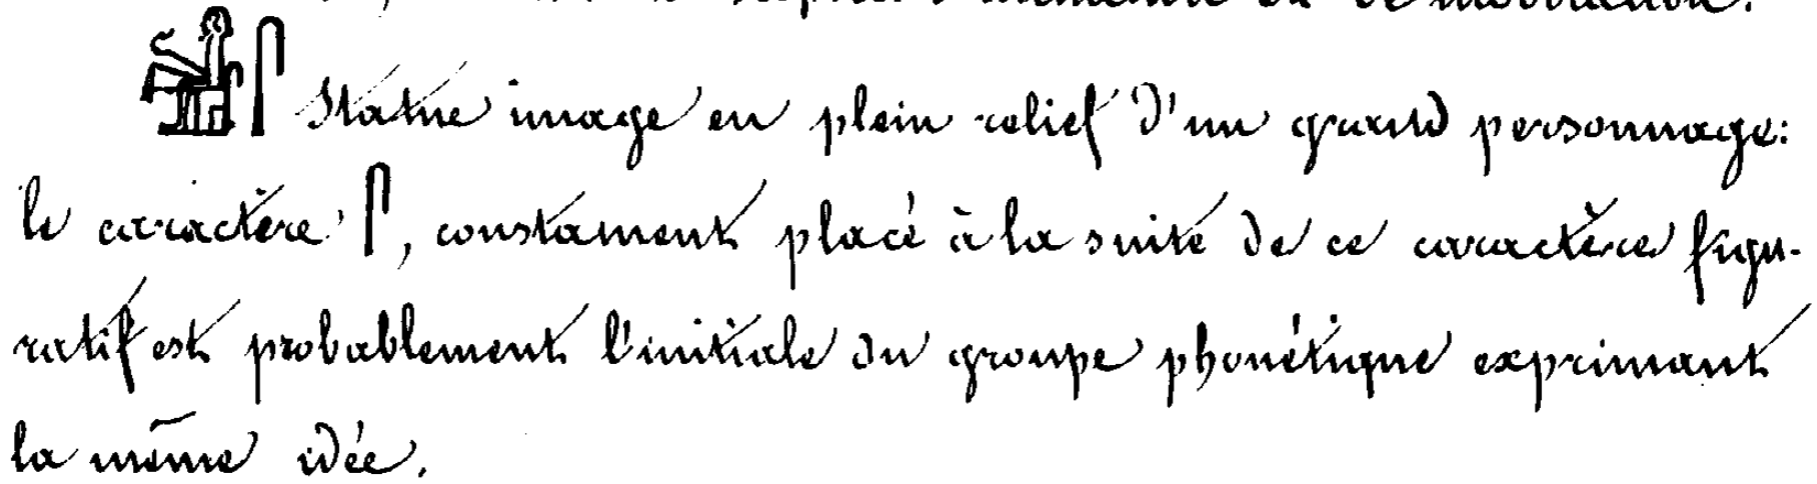 Statue image en plein relief d'un grand personnage:
le caractère 𓋴, constament placé à la suite de ce caractère figu-
ratif est probablement l'initiale du groupe phonétique exprimant
la même idée.